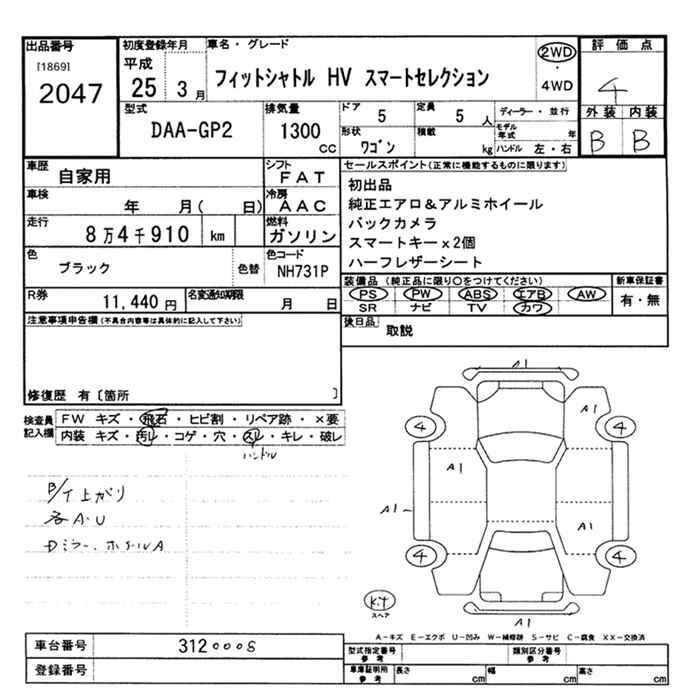 出品番号
[1869]
2047
初度登録年月
平成
25 3月
車名・グレード
フィットシャトル HV スマートセレクション
2WD
・
4WD
評価点
4
外装 内装
B B
型式
DAA-GP2
排気量
1300
cc
ドア
5
定員
5人
形状
ワゴン
積載
kg
ディーラー・並行
モデル年式 年
ハンドル 左・右
車歴
自家用
シフト
FAT
車検
年 月( 日)
冷房
AAC
走行
8万4千910 km
燃料
ガソリン
色
ブラック
色替
色コード
NH731P
R券
11,440円
名変通知期限
月 日
セールスポイント(正常に機能するものに限ります)
初出品
純正エアロ&アルミホイール
バックカメラ
スマートキーx2個
ハーフレザーシート
装備品(純正品に限り○をつけてください)
PS PW ABS エアB AW
SR ナビ TV カワ
新車保証書
有・無
後日品
取説
注意事項申告欄(不具合内容等は具体的に記入して下さい)
修復歴 有〔箇所 〕
検査員記入欄
FW キズ・飛石・ヒビ割・リペア跡・×要
内装 キズ・汚レ・コゲ・穴・スレ・キレ・破レ
ハンドル
B/T上がり
各A・U
Dミラー、ホイルA
A1
A1
4 4
A1
A1
A1
4 4
A1
Kit
スペア
A-キズ E-エクボ U-凹み W-補修跡 S-サビ C-腐食 XX-交換済
車台番号
3120005
登録番号
型式指定番号
参考
類別区分番号
参考
車庫証明用
参考
長さ cm
幅 cm
高さ cm